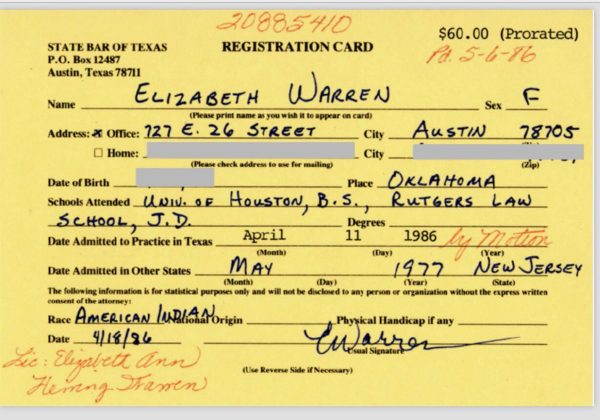 20885410
STATE BAR OF TEXAS REGISTRATION CARD $60.00 (Prorated)
P.O. Box 12487 Pd. 5-6-86
Austin, Texas 78711
Name ELIZABETH WARREN Sex F
(Please print name as you wish it to appear on card)
Address: x Office: 727 E. 26 STREET City AUSTIN 78705
Home: City
(Please check address to use for mailing) (Zip)
Date of Birth Place OKLAHOMA
Schools Attended UNIV. OF HOUSTON, B.S., RUTGERS LAW
SCHOOL, J.D. Degrees
Date Admitted to Practice in Texas April 11 1986 by Motion
(Month) (Day) (Year)
Date Admitted in Other States MAY 1977 NEW JERSEY
(Month) (Day) (Year) (State)
The following information is for statistical purposes only and will not be disclosed to any person or organization without the express written
consent of the attorney:
Race AMERICAN INDIAN National Origin Physical Handicap if any
Date 4/18/86 EWarren
Usual Signature
Lic: Elizabeth Ann
(Use Reverse Side if Necessary)